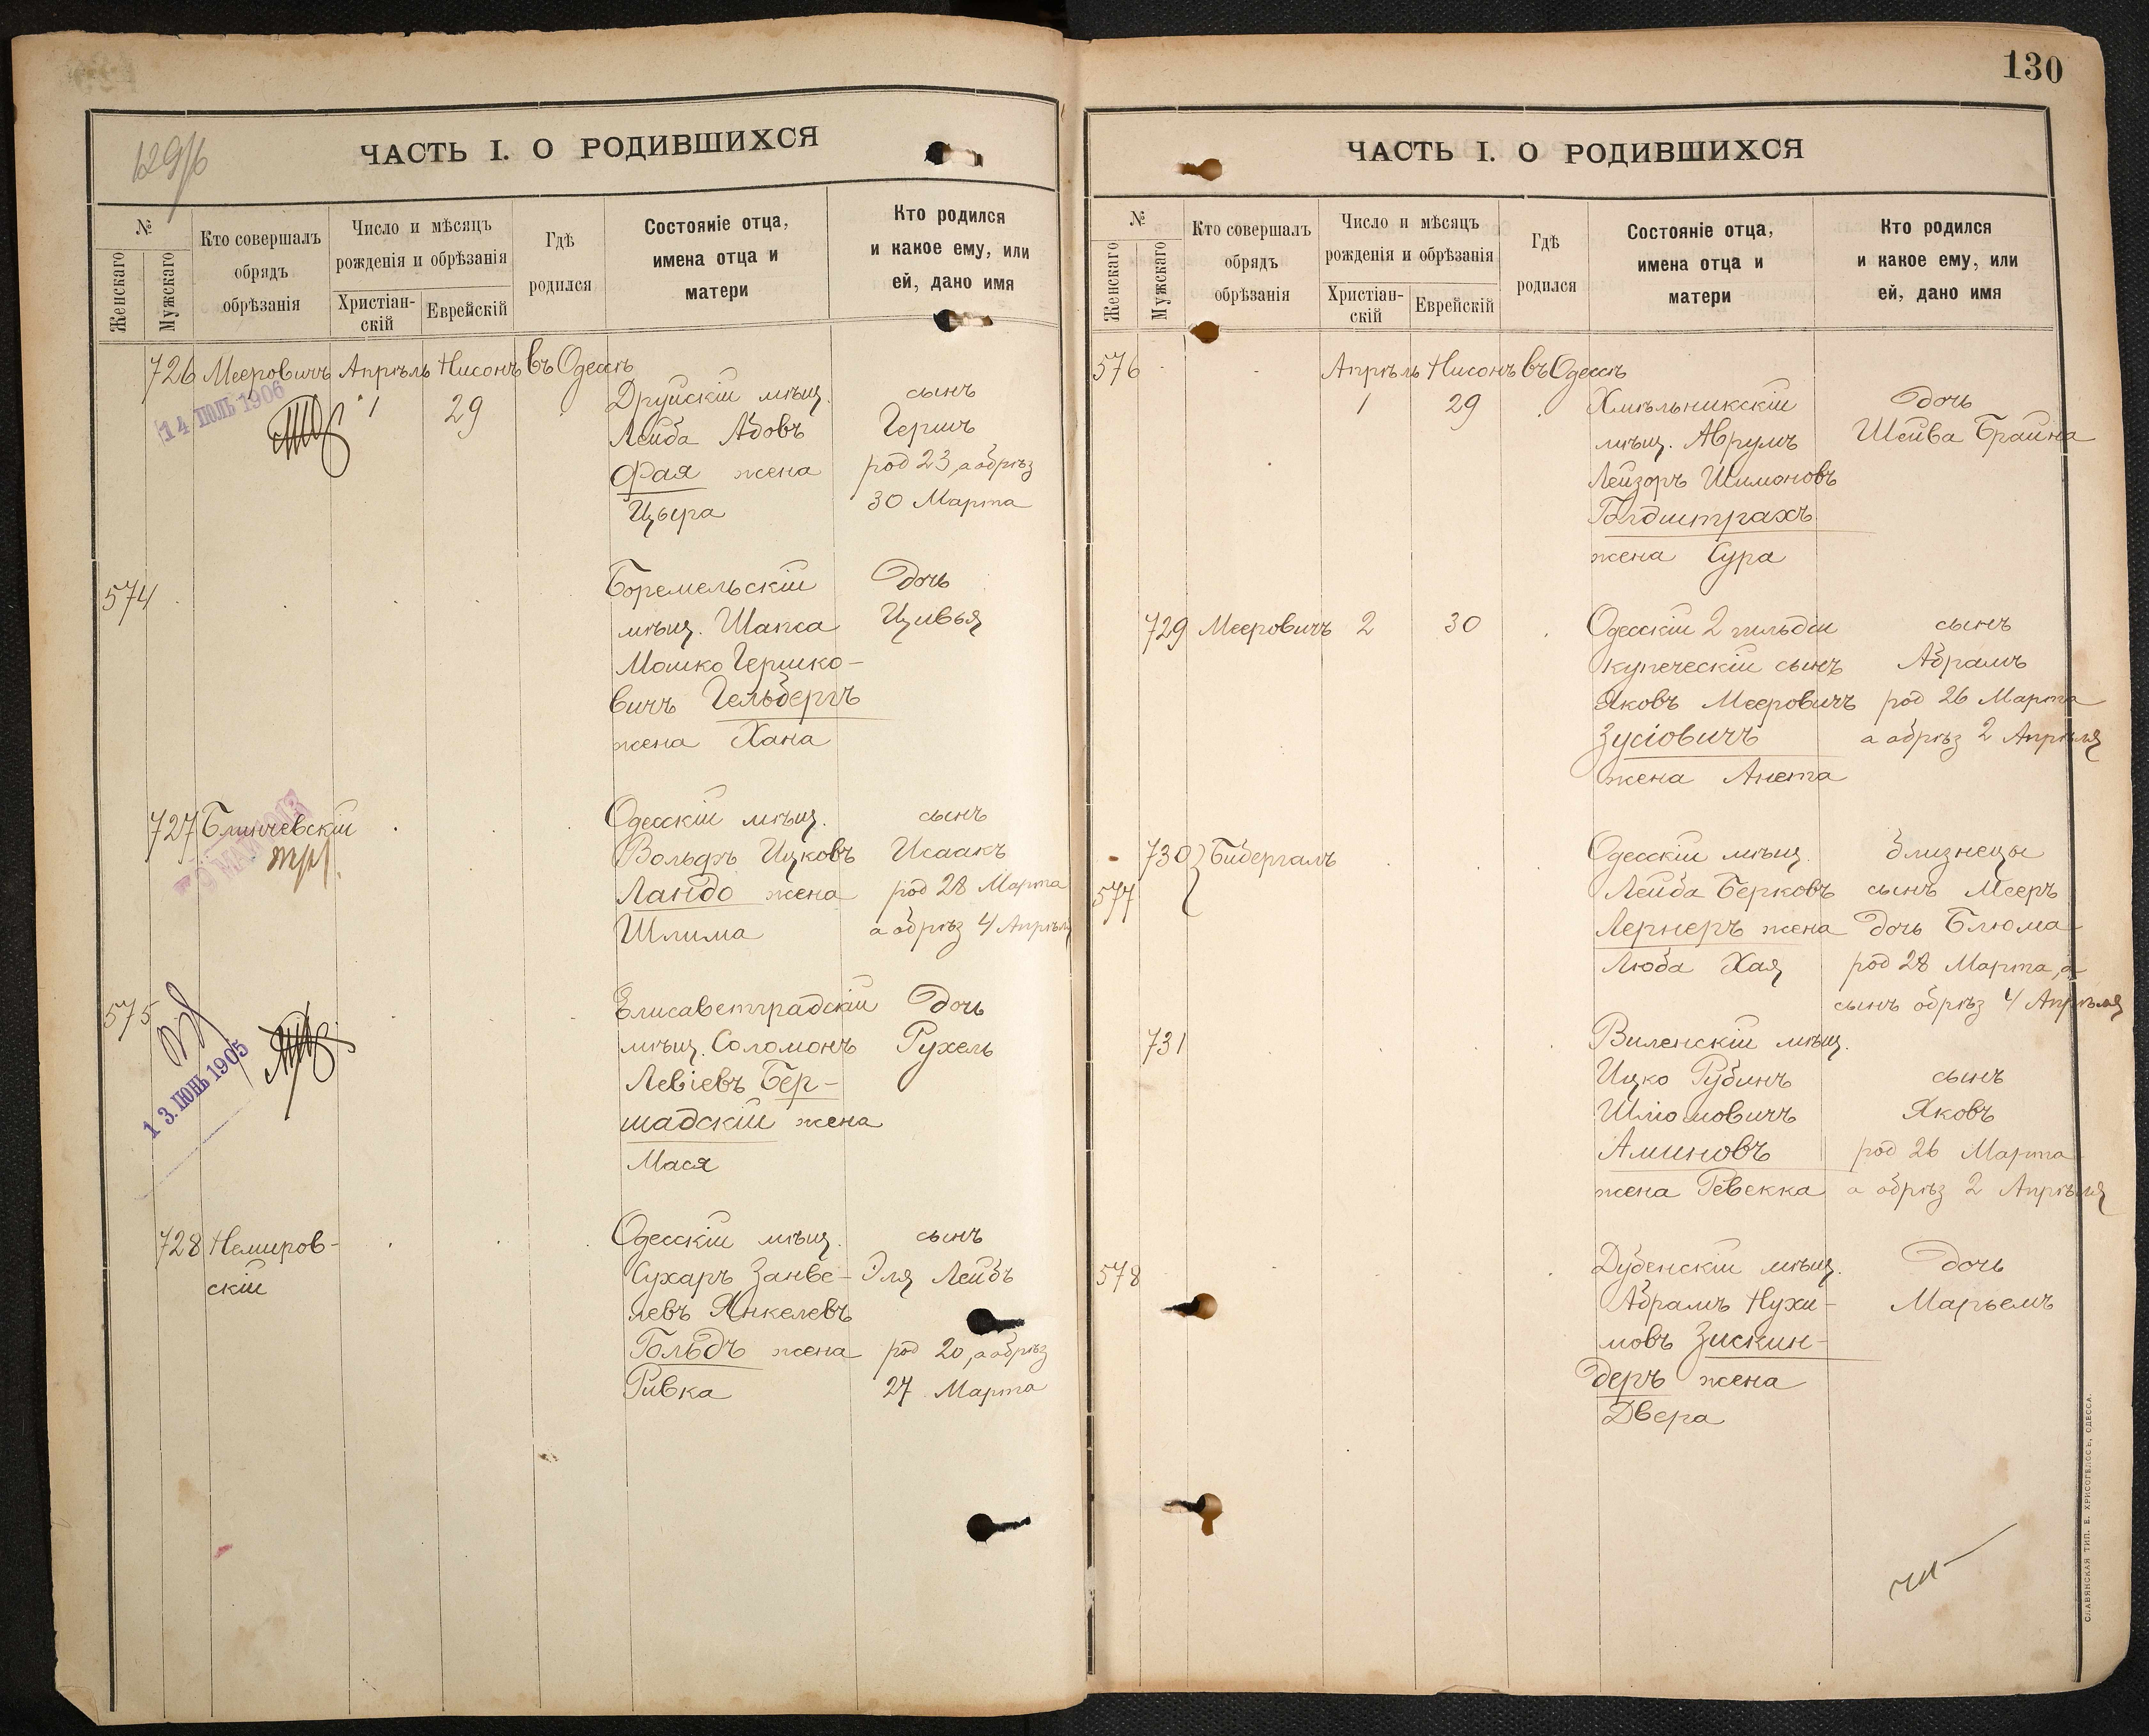 129/б
ЧАСТЬ I. О РОДИВШИХСЯ
№
Женскаго
Мужскаго
Кто совершалъ
обрядъ
обрѣзанія
Число и мѣсяцъ
рожденія и обрѣзанія
Христіан-
скій
Еврейскій
Гдѣ
родился
Состояніе отца,
имена отца и
матери
Кто родился
и какое ему, или
ей, дано имя
726 Мееровичъ Апрѣль Нисонъ въ Одессѣ
14 ІЮЛЬ 1906
1 29
Друйскій мѣщ. сынъ
Лейба Абовъ Гершъ
Фая жена род 23, а обрѣз
Цъера 30 Марта
574
Боремельскій Дочь
мѣщ. Шапса Цивья
Мошко Гершко-
вичъ Гельбергъ
жена Хана
727 Блинчевскій Одесскій мѣщ. сынъ
Вольфъ Ицковъ Исаакъ
Ландо жена род 28 Марта
Шлима а обрѣз 4 Апрѣля
575
13. ІЮНЬ 1905
Елисаветградскій Дочь
мѣщ. Соломонъ Рухель
Левіевъ Бер-
шадскій жена
Мася
728 Немиров- Одесскій мѣщ. сынъ
скій
Сухаръ Занве- Эля Лейбъ
левъ Янкелевъ
Гольдъ жена род 20, а обрѣз
Ривка 27 Марта
130
ЧАСТЬ I. О РОДИВШИХСЯ
№
Женскаго
Мужскаго
Кто совершалъ
обрядъ
обрѣзанія
Число и мѣсяцъ
рожденія и обрѣзанія
Христіан-
скій
Еврейскій
Гдѣ
родился
Состояніе отца,
имена отца и
матери
Кто родился
и какое ему, или
ей, дано имя
576 Апрѣль Нисонъ въ Одессѣ
1 29 Хмѣльникскій Дочь
мѣщ. Аврумъ Шейва Брайна
Лейзоръ Шимоновъ
Голдштрахъ
жена Сура
729 Мееровичъ 2 30 Одесскій 2 гильдіи сынъ
купеческій сынъ Абрамъ
Яковъ Мееровичъ род 26 Марта
Зусіовичъ а обрѣз 2 Апрѣля
жена Анета
730 Бибергалъ Одесскій мѣщ. близнецы
577 Лейба Берковъ сынъ Мееръ
Лернеръ жена Дочь Блюма
Люба Хая род 28 Марта, а
сынъ обрѣз 4 Апрѣля
731 Виленскій мѣщ.
Ицко Рубинъ сынъ
Шліомовичъ Яковъ
Аминовъ род 26 Марта
жена Ревекка а обрѣз 2 Апрѣля
578 Дубенскій мѣщ. Дочь
Абрамъ Нухи- Марьемъ
мовъ Зискин-
деръ жена
Двера
СЛАВЯНСКАЯ ТИП. Е. ХРИСОГЕЛОСЪ, ОДЕССА.